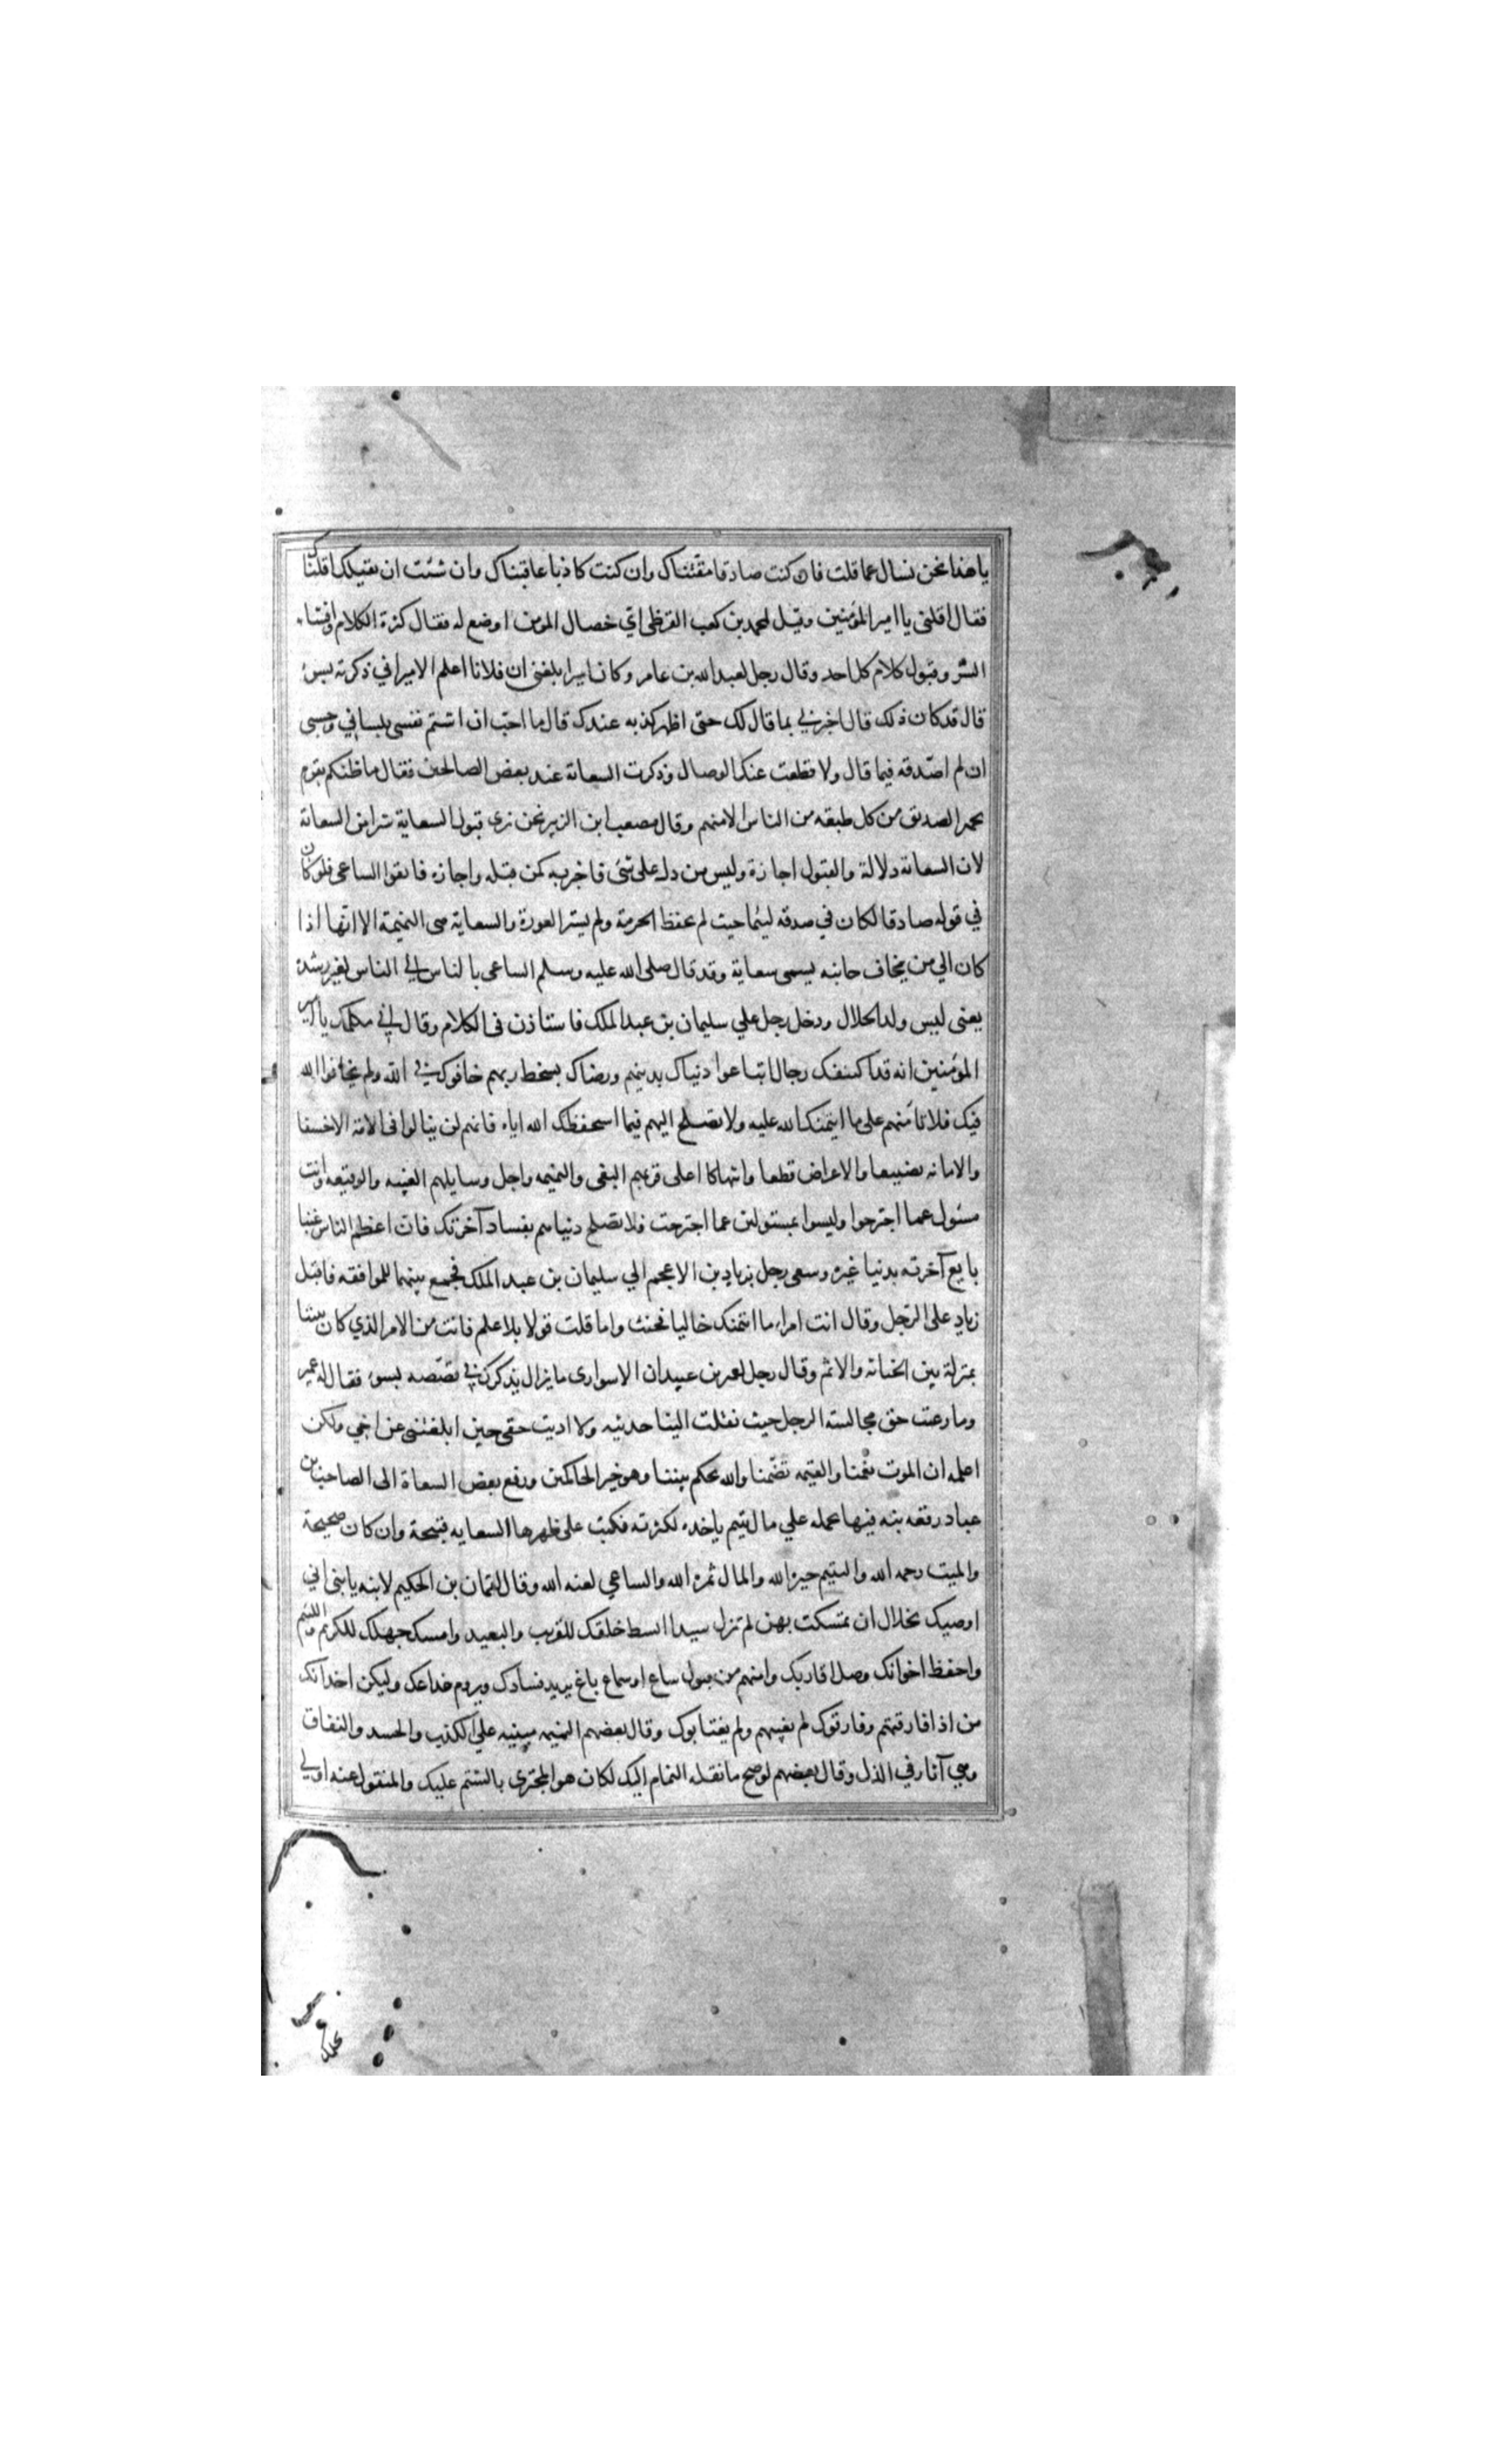 يا هذا نحن نسال عما قلت فان كنت صادقا مقتناك وان كنت كاذبا عاقبناك وان شئت ان نقيلك اقلناك
فقال اقلني يا امير المؤمنين وقيل لمحمد بن كعب القرظي اي خصال المومن اوضع له فقال كثرة الكلام وافشاء
السر وقبول كلام كل احد وقال رجل لعبد الله بن عامر وكان اميرا بلغني ان فلانا اعلم الامير اني ذكرته بسوء
قال قد كان ذلك قال اخبرني بما قال لك حتى اظهر كذبه عندك قال ما احب ان اشتم نفسي بلساني وحسبي
ان لم اصدقه فيما قال ولا قطعت عنك الوصال وذكرت السعاية عند بعض الصالحين فقال ما ظنكم بقوم
يحمد الصدق من كل طبقه من الناس الا منهم وقال مصعب ابن الزبير نحن نرى قبول السعاية شرا من السعاية
لان السعاية دلالة والقبول اجازة وليس من دل على شئ فاخبر به كمن قبله واجازه فاتقوا الساعي فلو كان
في قوله صادقا لكان في صدقه لئيما حيث لم يحفظ الحرمة ولم يستر العورة والسعاية هي النميمة الا انها اذا
كان الي من يخاف جانبه يسمى سعاية وقد قال صلى الله عليه وسلم الساعي بالناس الي الناس لغير رشدة
يعني ليس ولد الحلال ودخل رجل علي سليمان بن عبد الملك فاستاذن في الكلام وقال اني مكلمك يا امير
المؤمنين انه قد اكتنفك رجال ابتاعوا دنياك بدينهم ورضاك بسخط ربهم خافوك في الله ولم يخافوا الله
فيك فلا تامنهم على ما ائتمنك الله عليه ولا تصلح اليهم فيما استحفظك الله اياه فانهم لن ينالوا في الامة الا خسفا
والامانه تضييعا والاعراض قطعا وانتهاكا اعلى قربهم البغي والنميمه واجل وسايلهم الغيبه والوقيعه وانت
مسئول عما اجترحوا وليسوا بمسئولين عما اجترحت فلا تصلح دنياهم بفساد آخرتك فان اعظم الناس غبنا
بايع آخرته بدنيا غيره وسعى رجل بزياد بن الاعجم الي سليمان بن عبد الملك فجمع بينهما للموافقه فاقبل
زياد على الرجل وقال انت امراء ما ائتمنتك خاليا فخنت واما قلت قولا بلا علم فانت من الامر الذي كان بيننا
بمنزلة بين الخيانه والاثم وقال رجل لعمر بن عبيد ان الاسواري ما يزال يذكرك في قصصه بسوء فقال له عمير
وما رعيت حق مجالسة الرجل حيث نقلت الينا حديثه ولا اديت حقي حين ابلغتني عن اخي ولكن
اعلمه ان الموت يعمنا والقيمه تضمنا والله يحكم بيننا وهو خير الحاكمين ورفع بعض السعاة الى الصاحب بن
عباد رقعه نبه فيها عمله علي مال يتيم ياخذه لكثرته فكتب على ظهرها السعايه قبيحة وان كان صحيحة
والميت رحمه الله واليتيم جبره الله والمال ثمره الله والساعي لعنه الله وقال لقمان بن الحكيم لابنه يا بني اني
اوصيك بخلال ان تمسكت بهن لم تزل سيدا ابسط خلقك للقريب والبعيد وامسك جهلك للكريم واللئيم
واحفظ اخوانك وصل اقاربك وامنهم من قبول ساع او سماع باغ يريد فسادك ويروم خداعك وليكن اخدانك
من اذا فارقتهم وفارقوك لم تغبهم ولم يغتابوك وقال بعضهم النميمه مبنيه علي الكذب والحسد والنفاق
وهي آثار في الذل وقال بعضهم لو صح ما نقله النمام اليك لكان هو المجتري بالشتم عليك والمنقول عنه اولي